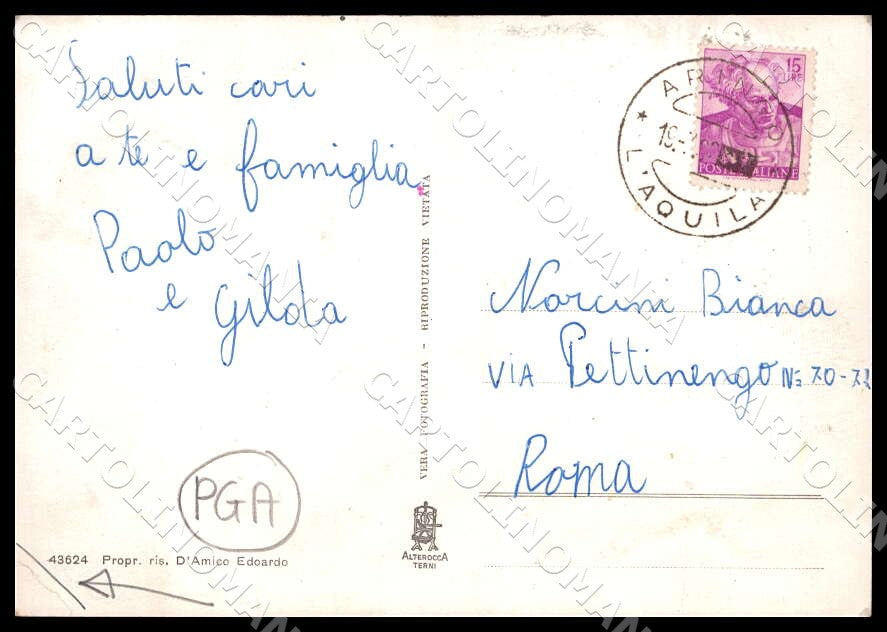 Saluti cari
a te e famiglia
Paolo
e Gilda
PGA
43624 Propr. ris. D'Amico Edoardo
VERA FOTOGRAFIA - RIPRODUZIONE VIETATA
ALTEROCCA
TERNI
15
LIRE
POSTE ITALIANE
* L'AQUILA
Norcini Bianca
VIA Pettinengo N= 70-72
Roma
CARTOLINOMANIA